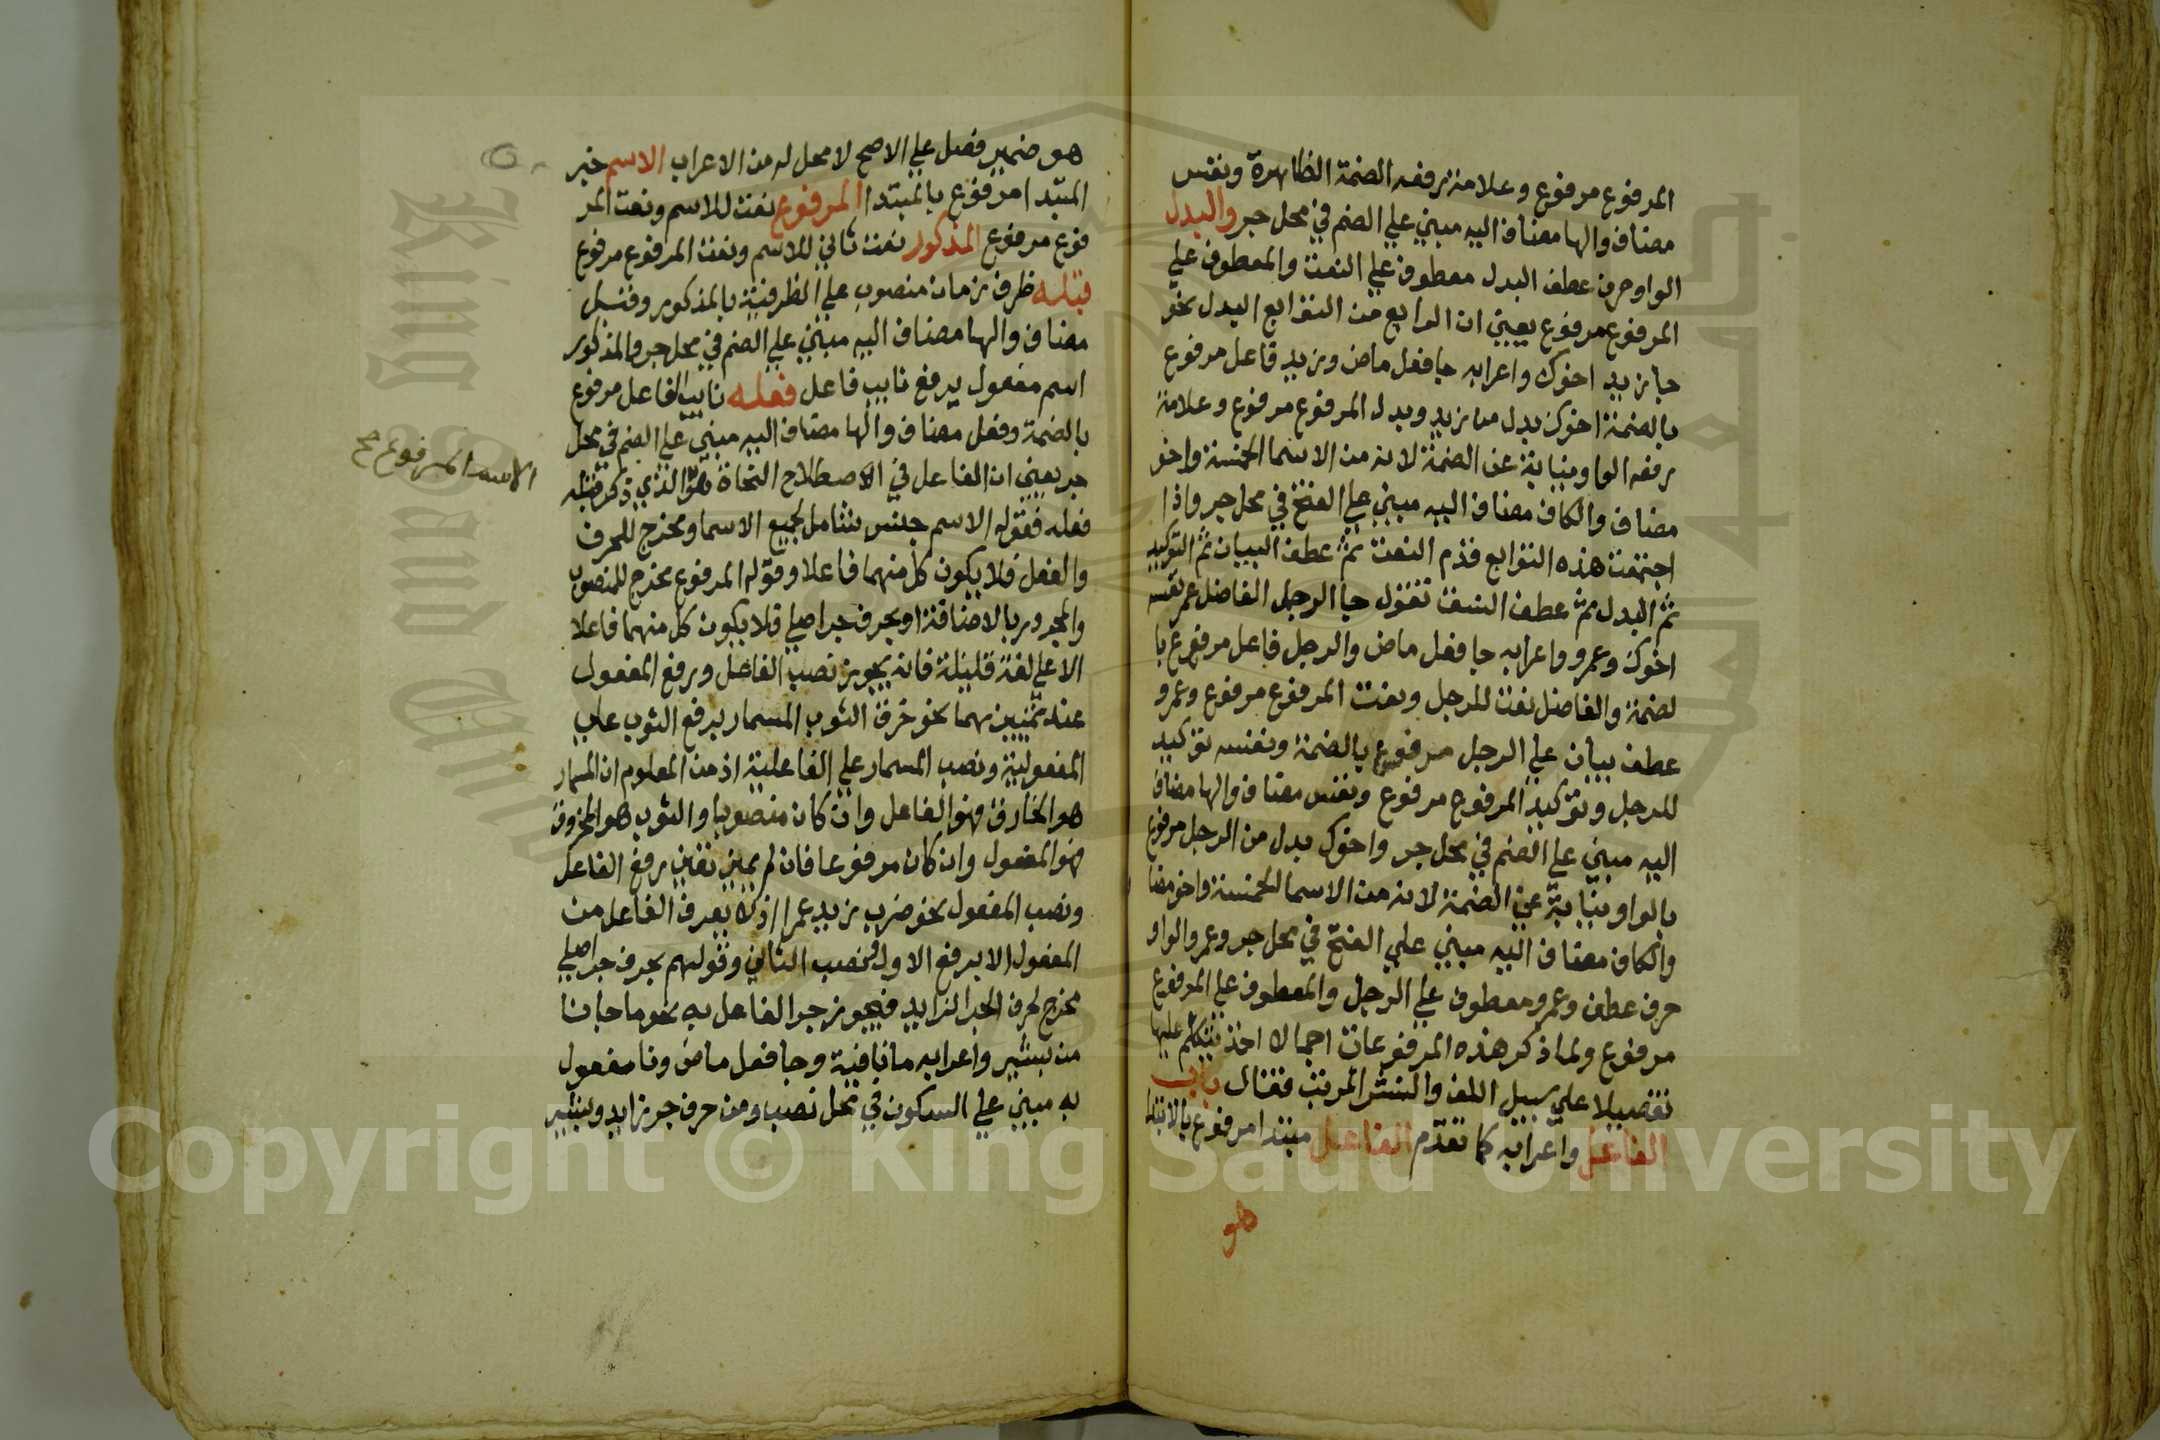 المرفوع مرفوع وعلامة رفعه الضمة الظاهرة ونفس
مضاف والها مضاف اليه مبني علي الضم في محل جر والبدل
الواو حرف عطف البدل معطوف علي النعت والمعطوف علي
المرفوع مرفوع يعني ان الرابع من التوابع البدل نحو
جا زيد اخوك واعرابه جا فعل ماض وزيد فاعل مرفوع
بالضمة اخوك بدل من زيد وبدل المرفوع مرفوع وعلامة
رفعه الواو نيابة عن الضمة لانه من الاسما الخمسة واخو
مضاف والكاف مضاف اليه مبني علي الفتح في محل جر واذا
اجتمعت هذه التوابع قدم النعت ثم عطف البيان ثم التوكيد
ثم البدل ثم عطف النسق تقول جا الرجل الفاضل عمر نفسه
اخوك وعمرو واعرابه جا فعل ماض والرجل فاعل مرفوع با
لضمة والفاضل نعت للرجل ونعت المرفوع مرفوع وعمرو
عطف بيان علي الرجل مرفوع بالضمة ونفسه توكيد
للرجل وتوكيد المرفوع مرفوع ونفس مضاف والها مضاف
اليه مبني علي الضم في محل جر واخوك بدل من الرجل مرفوع
بالواو نيابة عن الضمة لانه من الاسما الخمسة واخو مضا
والكاف مضاف اليه مبني علي الفتح في محل جر وعمرو الواو
حرف عطف وعمرو معطوف علي الرجل والمعطوف علي المرفوع
مرفوع ولما ذكر هذه المرفوعات اجمالا اخذ يتكلم عليها
تفصيلا علي سبيل اللف والنشر المرتب فقال باب
الفاعل واعرابه كما تقدم الفاعل مبتدا مرفوع بالابتدا
هو
هو ضمير فصل علي الاصح لا محل له من الاعراب الاسم خبر
المبتدا مرفوع بالمبتدا المرفوع نعت للاسم ونعت المر
فوع مرفوع المذكور نعت ثاني للاسم ونعت المرفوع مرفوع
قبله ظرف زمان منصوب علي الظرفية بالمذكور وقبل
مضاف والها مضاف اليه مبني علي الضم في محل جر والمذكور
اسم مفعول يرفع نايب فاعل فعله نايب الفاعل مرفوع
بالضمة وفعل مضاف والها مضاف اليه مبني علي الضم في محل
جر يعني ان الفاعل في الاصطلاح النحاة هو الذي ذكر قبله
الاسم المرفوع صح
فعله فقوله الاسم جنس شامل لجميع الاسما ومخرج للحرف
والفعل فلا يكون كل منهما فاعلا وقوله المرفوع مخرج للمنصوب
والمجرور بالاضافة او بحرف جر اصلي فلا يكون كل منهما فاعلا
الا علي لغة قليلة فانه يجوز نصب الفاعل ورفع المفعول
عند تمييزهما نحو خرق الثوب المسمار برفع الثوب علي
المفعولية ونصب المسمار علي الفاعلية اذ من المعلوم ان المسمار
هو الخارق فهو الفاعل وان كان منصوبا والثوب هو المخروق
فهو المفعول وان كان مرفوعا فان لم يميز تعين رفع الفاعل
ونصب المفعول نحو ضرب زيد عمرا اذ لا يعرف الفاعل من
المفعول الا برفع الاول ونصب الثاني وقولهم بحرف جر اصلي
مخرج لحرف الجر الزايد فيجوز جر الفاعل به نحو ما جانا
من بشير واعرابه ما نافية وجا فعل ماض ونا مفعول
به مبني علي السكون في محل نصب ومن حرف جر زايد وبشير
Copyright © King Saud University
King Saud University